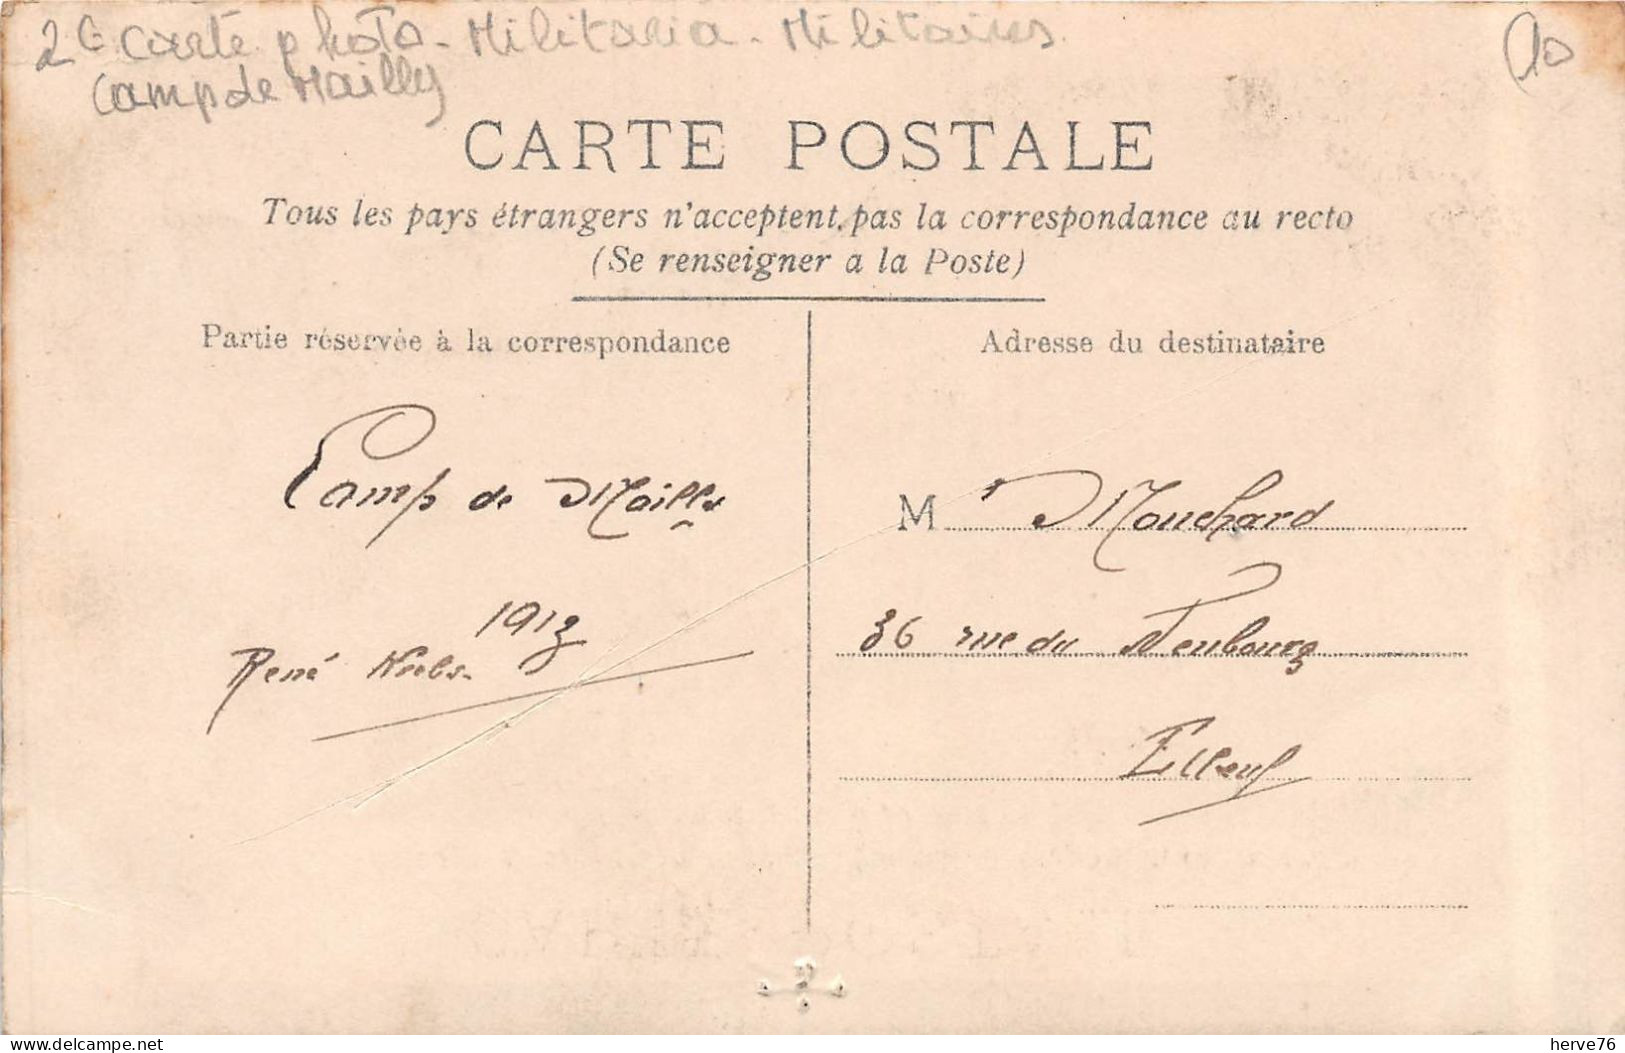 2G carte photo - Militaria - Militaires
Camp de Mailly
10
CARTE POSTALE
Tous les pays étrangers n'acceptent pas la correspondance au recto
(Se renseigner a la Poste)
Partie réservée à la correspondance
Camp de Mailly
1913
René
Adresse du destinataire
M r Mouchard
36 rue du Neubourg
Elbeuf
delcampe.net
herve76